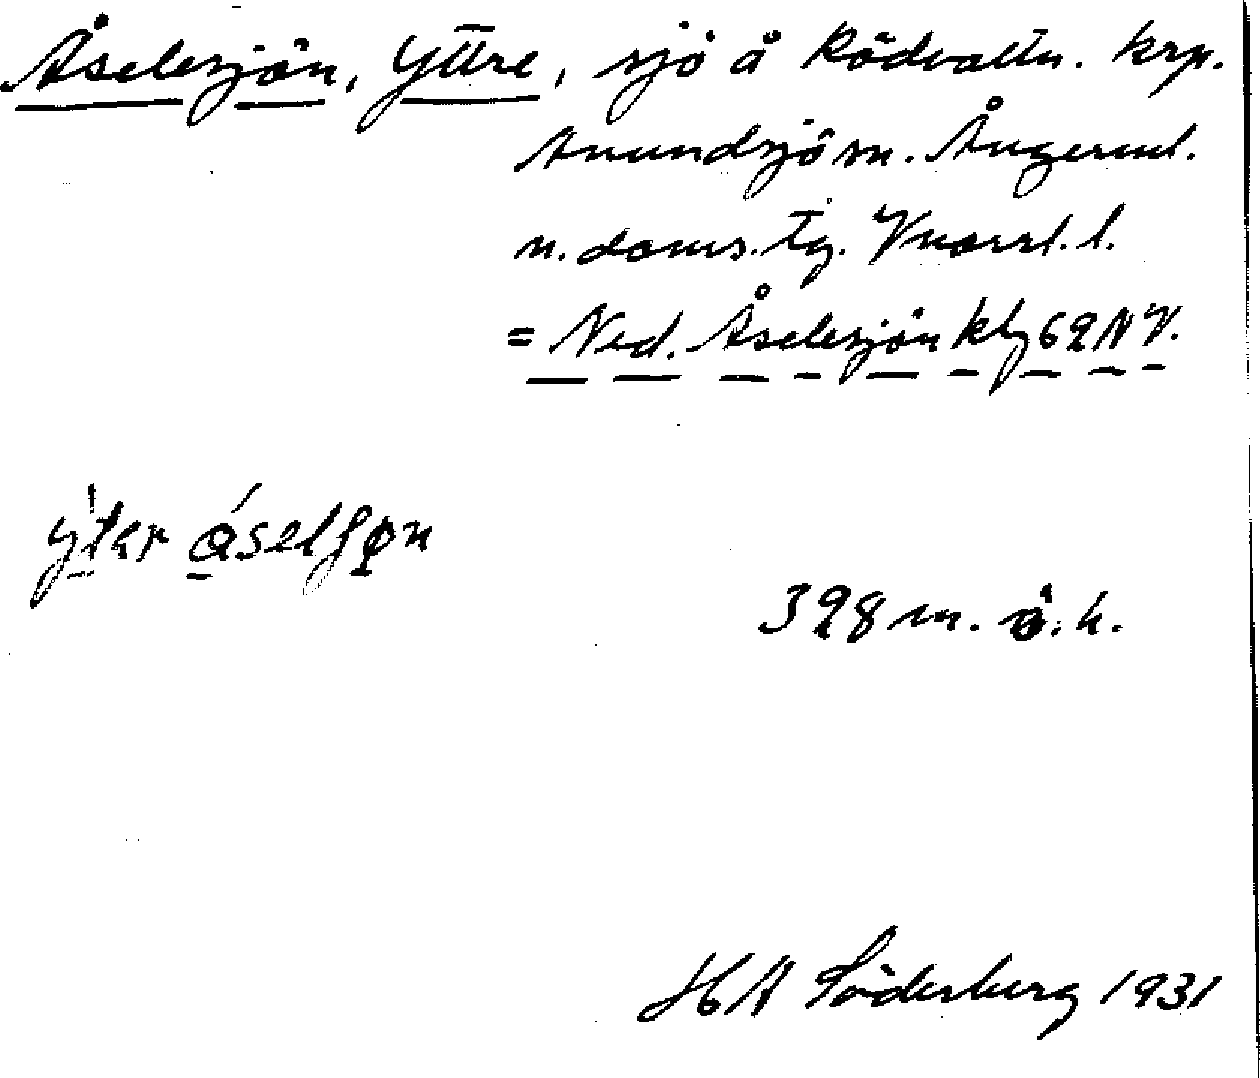 Åselesjön, Yttre, sjö å Rödvattn. krp.
Anundsjö sn. Ångerml.
n. doms. tg. Vnorrl. l.
= Ned. Åselesjön kbl 62 NV.
ýtər åselʃøn
398 m. ö. h.
HA Söderberg 1931